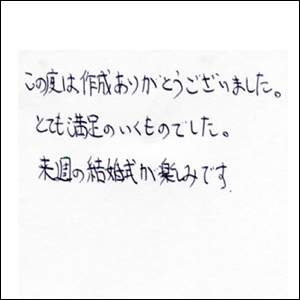 この度は作成ありがとうございました。
とても満足のいくものでした。
来週の結婚式が楽しみです